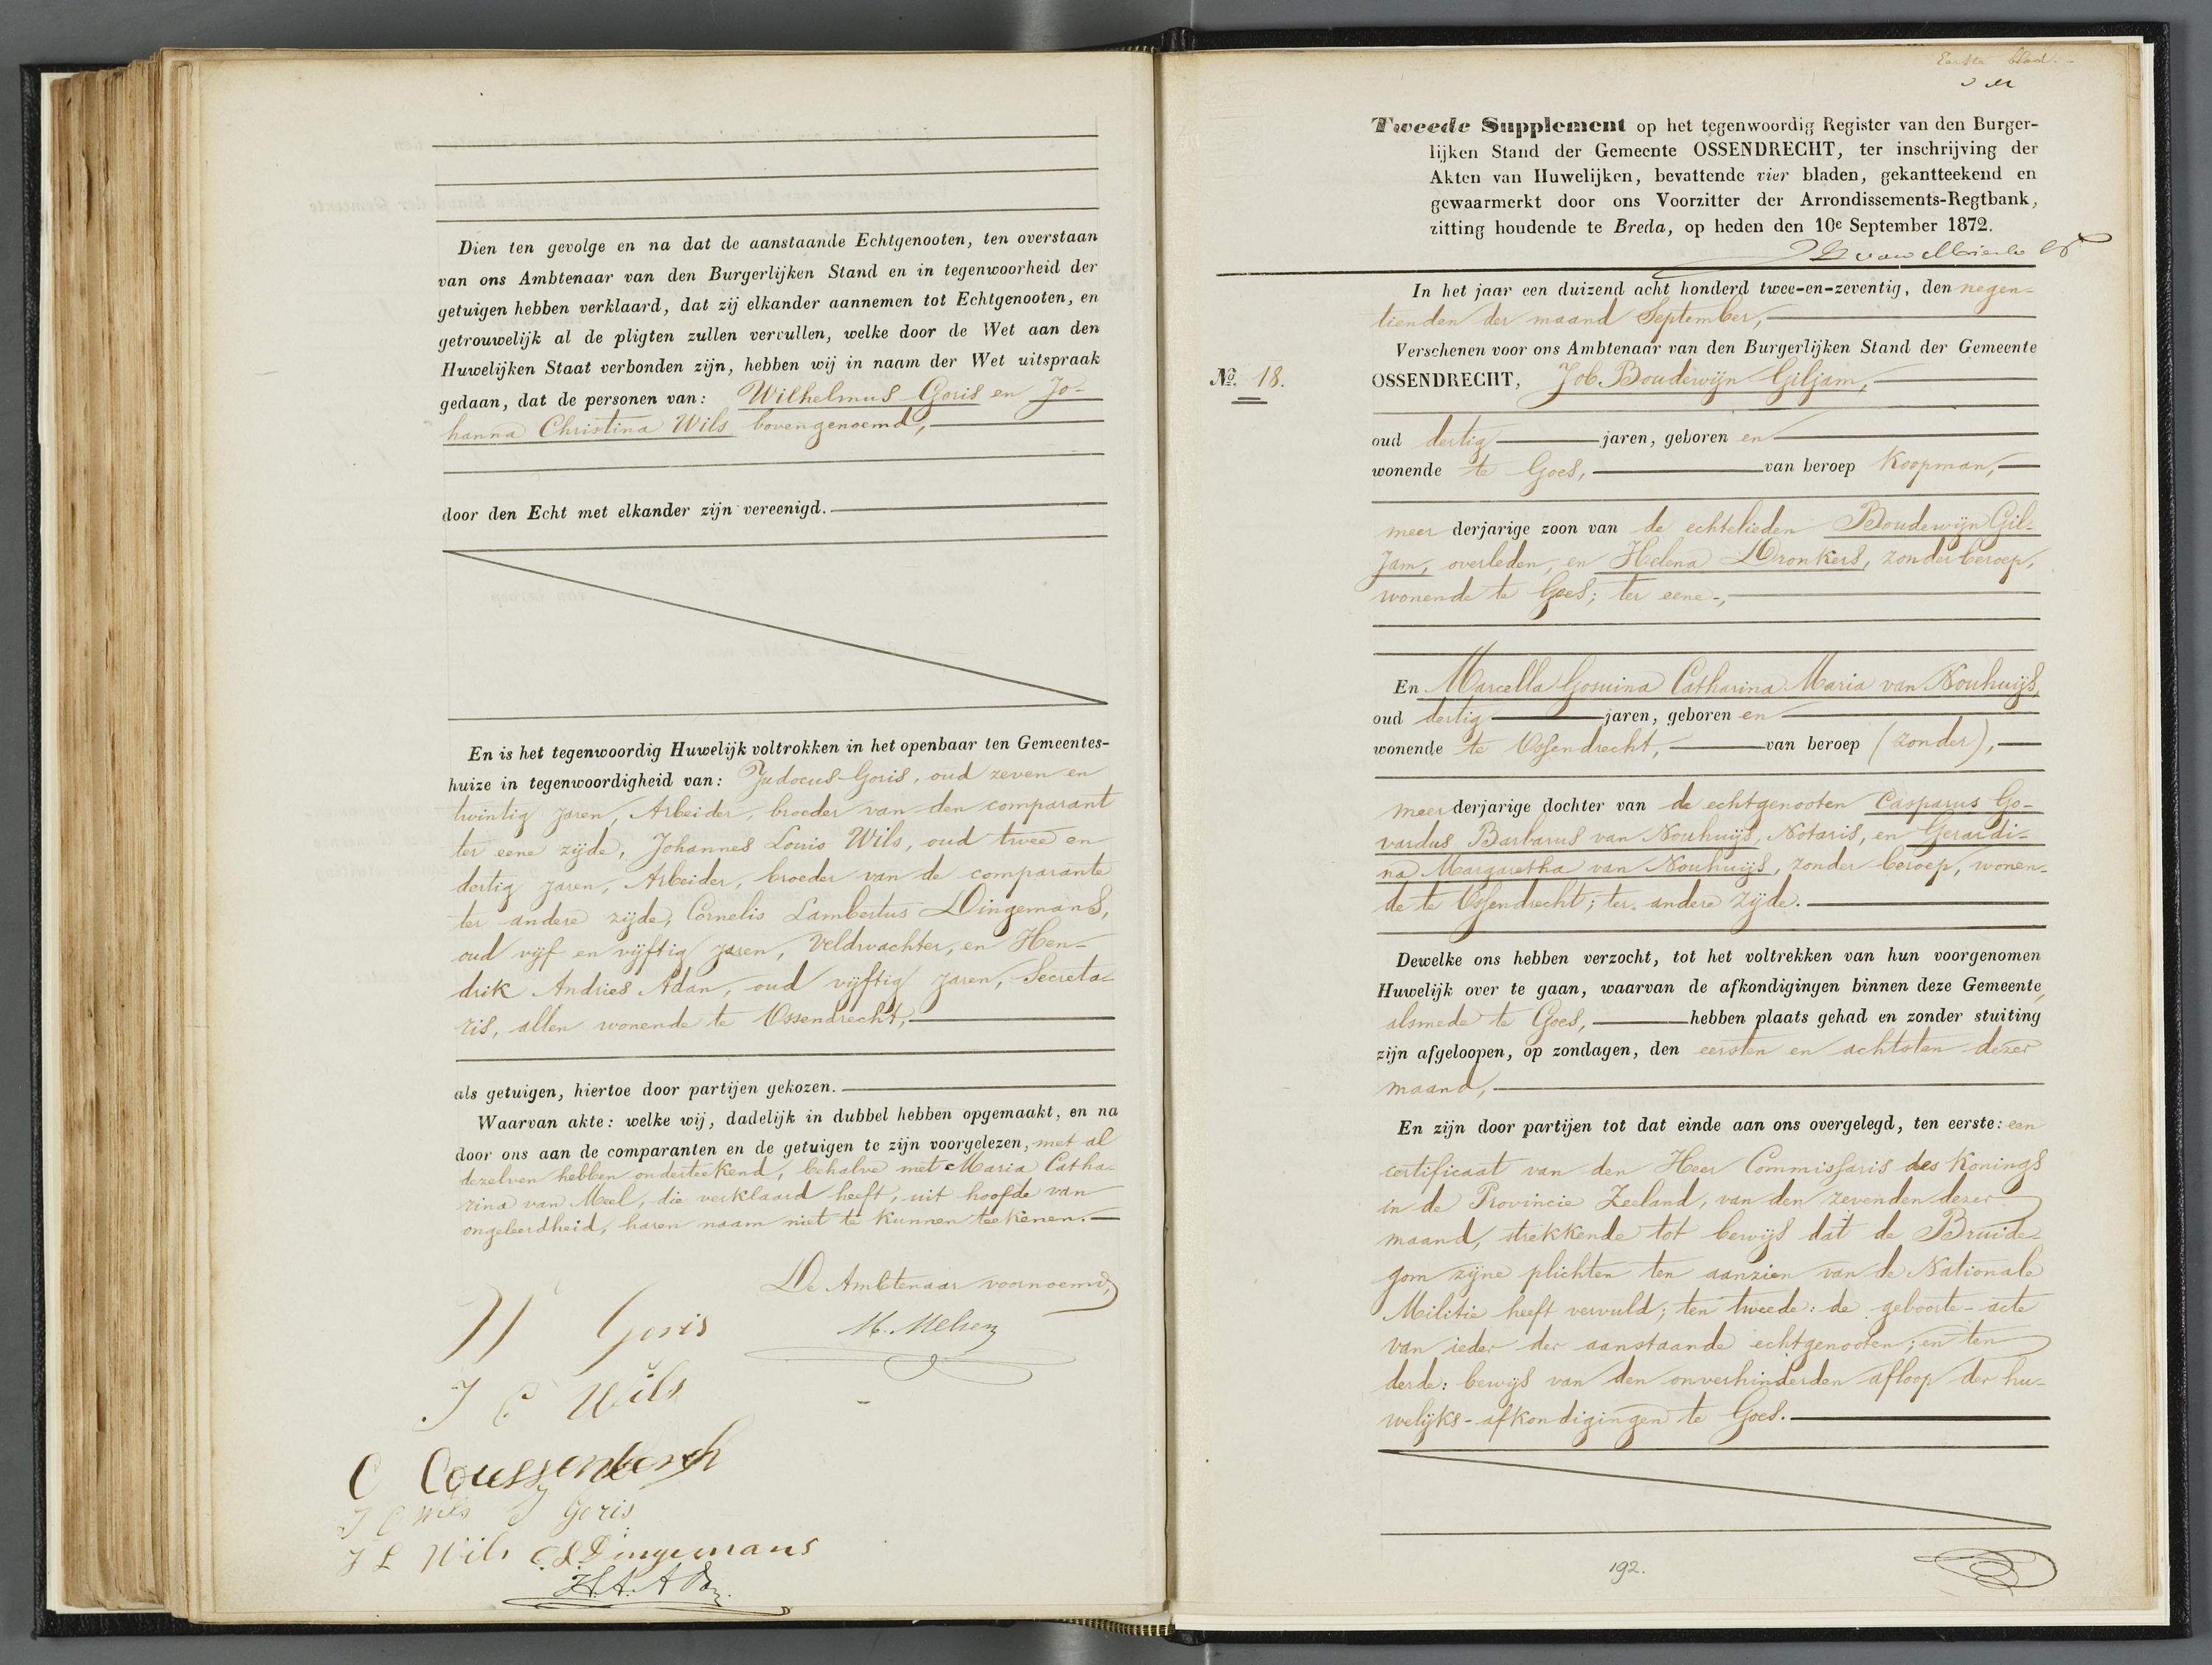 Dien ten gevolge en na dat de aanstaande Echtgenooten, ten overstaan
van ons Ambtenaar van den Burgerlijken Stand en in tegenwoorheid der
getuigen hebben verklaard, dat zij elkander aannemen tot Echtgenooten, en
getrouwelijk al de pligten zullen vervullen, welke door de Wet aan den
Huwelijken Staat verbonden zijn, hebben wij in naam der Wet uitspraak
gedaan, dat de personen van: Wilhelmus Goris en Jo-
hanna Christina Wils bovengenoemd,
door den Echt met elkander zijn vereenigd.
En is het tegenwoordig Huwelijk voltrokken in het openbaar ten Gemeentes-
huize in tegenwoordigheid van: Judocus Goris, oud zeven en
twintig jaren, Arbeider, broeder van den comparant
ter eene zijde, Johannes Louis Wils, oud twee en
dertig jaren, Arbeider, broeder van de comparante
ter andere zijde, Cornelis Lambertus Dingemans,
oud vijf en vijftig jaren, Veldwachter, en Hen-
drik Andries Adan, oud vijftig jaren, Secreta-
ris, allen wonende te Ossendrecht,
als getuigen, hiertoe door partijen gekozen.
Waarvan akte: welke wij, dadelijk in dubbel hebben opgemaakt, en na
door ons aan de comparanten en de getuigen te zijn voorgelezen, met al
dezelven hebben onderteekend, behalve met Maria Catha-
rina van Meel, die verklaard heeft, uit hoofde van
ongeleerdheid, haren naam niet te kunnen teekenen.
De Ambtenaar voornoemd,
W Goris
M. Melsen
J C Wils
C Coussenbergh
J C Wils J Goris
J L Wils C.L. Dingemans
H.A. Adan.
Eerste blad.
Tweede Supplement op het tegenwoordig Register van den Burger-
lijken Stand der Gemeente OSSENDRECHT, ter inschrijving der
Akten van Huwelijken, bevattende vier bladen, gekantteekend en
gewaarmerkt door ons Voorzitter der Arrondissements-Regtbank,
zitting houdende te Breda, op heden den 10e September 1872.
In het jaar een duizend acht honderd twee-en-zeventig, den negen-
tienden der maand September,
Verschenen voor ons Ambtenaar van den Burgerlijken Stand der Gemeente
No. 18. OSSENDRECHT, Job Boudewijn Giljam,
oud dertig jaren, geboren en
wonende te Goes, van beroep Koopman,
meer derjarige zoon van de echtelieden Boudewijn Gil-
jam, overleden, en Helena Dronkers, zonder beroep,
wonende te Goes; ter eene,
En Marcella Gosuina Catharina Maria van Nouhuijs,
oud dertig jaren, geboren en
wonende te Ossendrecht, van beroep (zonder),
meer derjarige dochter van de echtgenooten Casparus Go-
vardus Barbarus van Nouhuijs, Notaris, en Gerardi-
na Margaretha van Nouhuijs, zonder beroep, wonen-
de te Ossendrecht; ter andere zijde.
Dewelke ons hebben verzocht, tot het voltrekken van hun voorgenomen
Huwelijk over te gaan, waarvan de afkondigingen binnen deze Gemeente,
alsmede te Goes, hebben plaats gehad en zonder stuiting
zijn afgeloopen, op zondagen, den eersten en achtsten dezer
maand,
En zijn door partijen tot dat einde aan ons overgelegd, ten eerste: een
certificaat van den Heer Commissaris des Konings
in de Provincie Zeeland, van den zevenden dezer
maand, strekkende tot bewijs dat de Bruide-
gom zijne plichten ten aanzien van de Nationale
Militie heeft vervuld; ten tweede: de geboorte-acte
van ieder der aanstaande echtgenooten; en ten
derde: bewijs van den onverhinderden afloop der hu-
welijks-afkondigingen te Goes.
192.